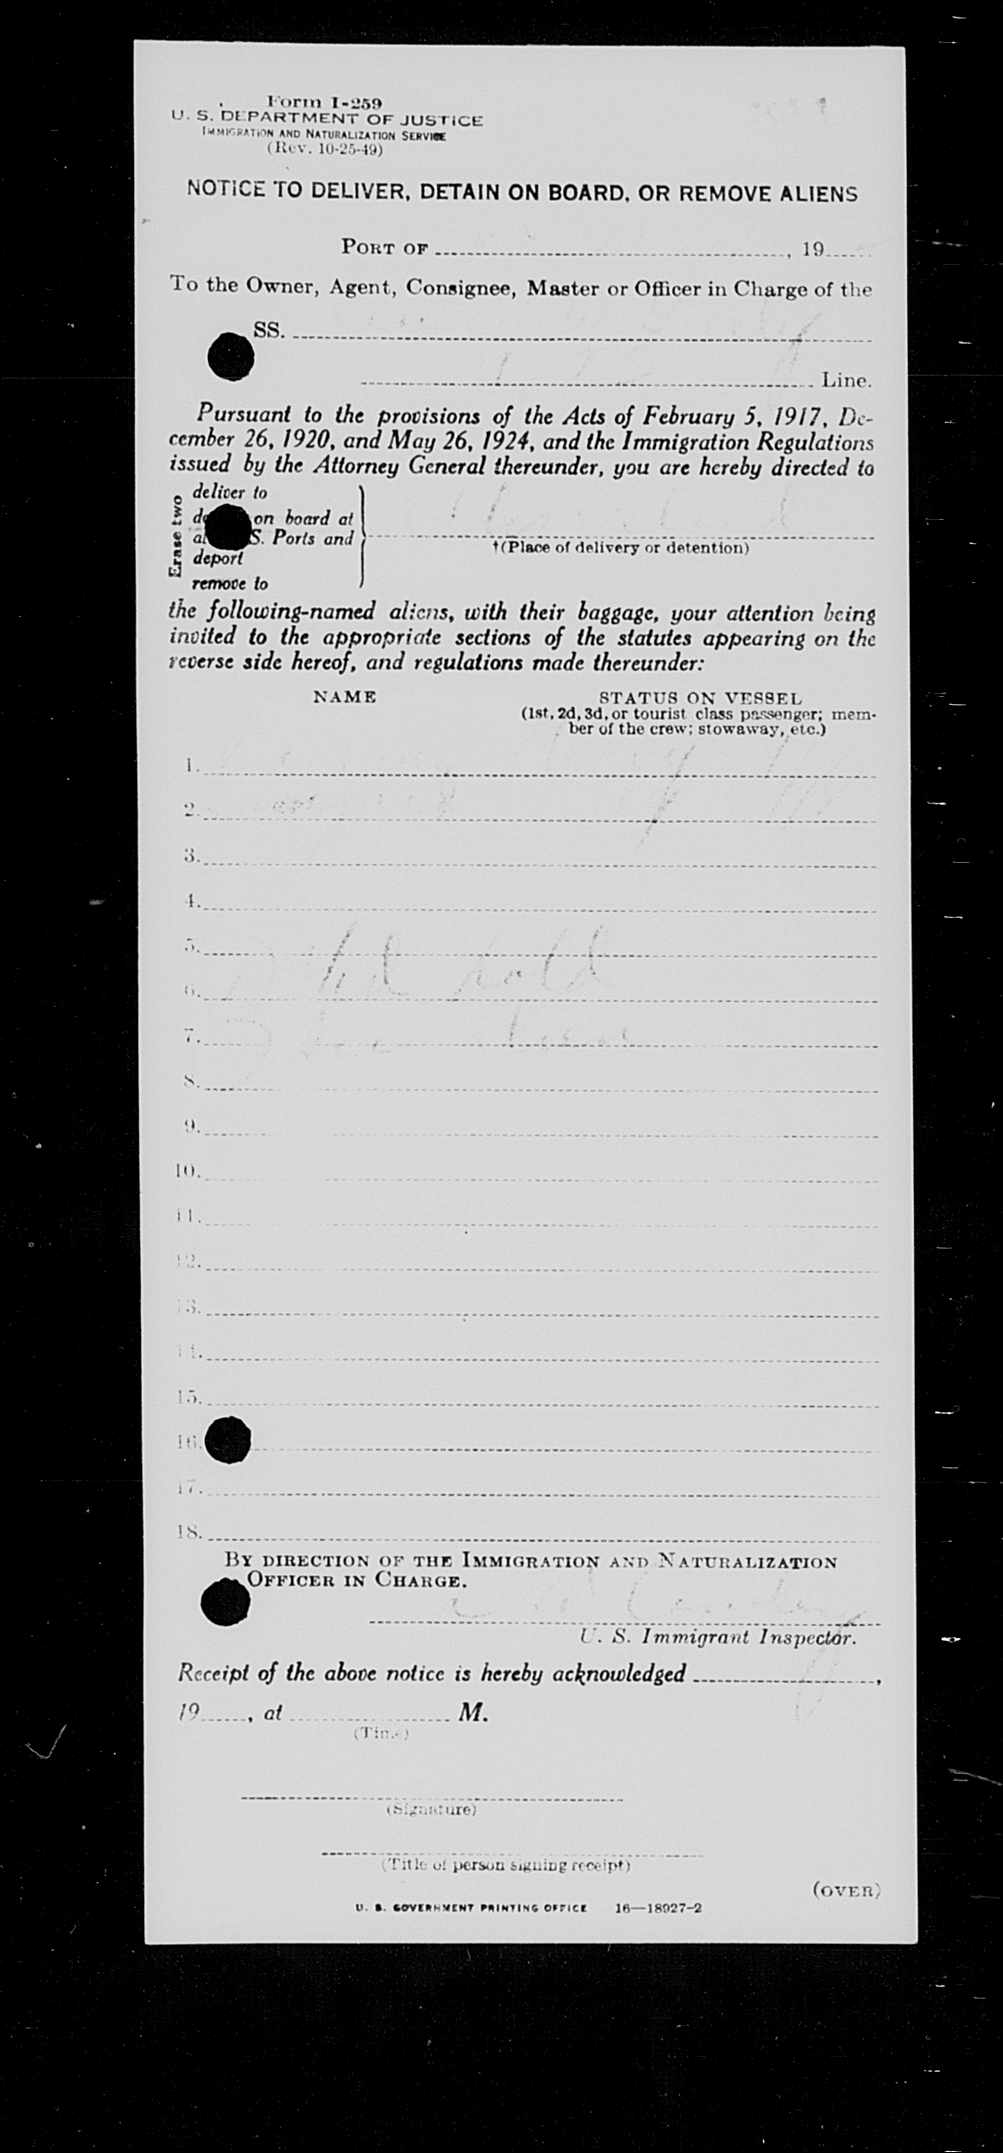 Form I-259
U. S. DEPARTMENT OF JUSTICE
IMMIGRATION AND NATURALIZATION SERVICE
(Rev. 10-25-49)
NOTICE TO DELIVER, DETAIN ON BOARD, OR REMOVE ALIENS
PORT OF , 19
To the Owner, Agent, Consignee, Master or Officer in Charge of the
SS.
Line.
Pursuant to the provisions of the Acts of February 5, 1917, De-
cember 26, 1920, and May 26, 1924, and the Immigration Regulations
issued by the Attorney General thereunder, you are hereby directed to
Erase two
deliver to
on board at
S. Ports and
deport
remove to
†(Place of delivery or detention)
the following-named aliens, with their baggage, your attention being
invited to the appropriate sections of the statutes appearing on the
reverse side hereof, and regulations made thereunder:
NAME STATUS ON VESSEL
(1st, 2d, 3d, or tourist class passenger; mem-
ber of the crew; stowaway, etc.)
1.
2.
3.
4.
5.
6.
7.
8.
9.
10.
11.
12.
13.
14.
15.
16.
17.
18.
BY DIRECTION OF THE IMMIGRATION AND NATURALIZATION
OFFICER IN CHARGE.
U. S. Immigrant Inspector.
Receipt of the above notice is hereby acknowledged ,
19 , at M.
(Time)
(Signature)
(Title of person signing receipt)
(OVER)
U. S. GOVERNMENT PRINTING OFFICE 16—18927-2